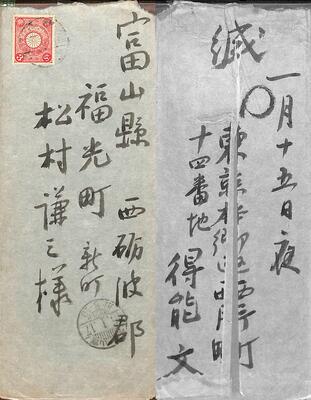 富山縣 西砺波郡
福光町 新町
松村謙三様
緘
一月十五日夜
東京本郷区西片町
十四番地
得能 文